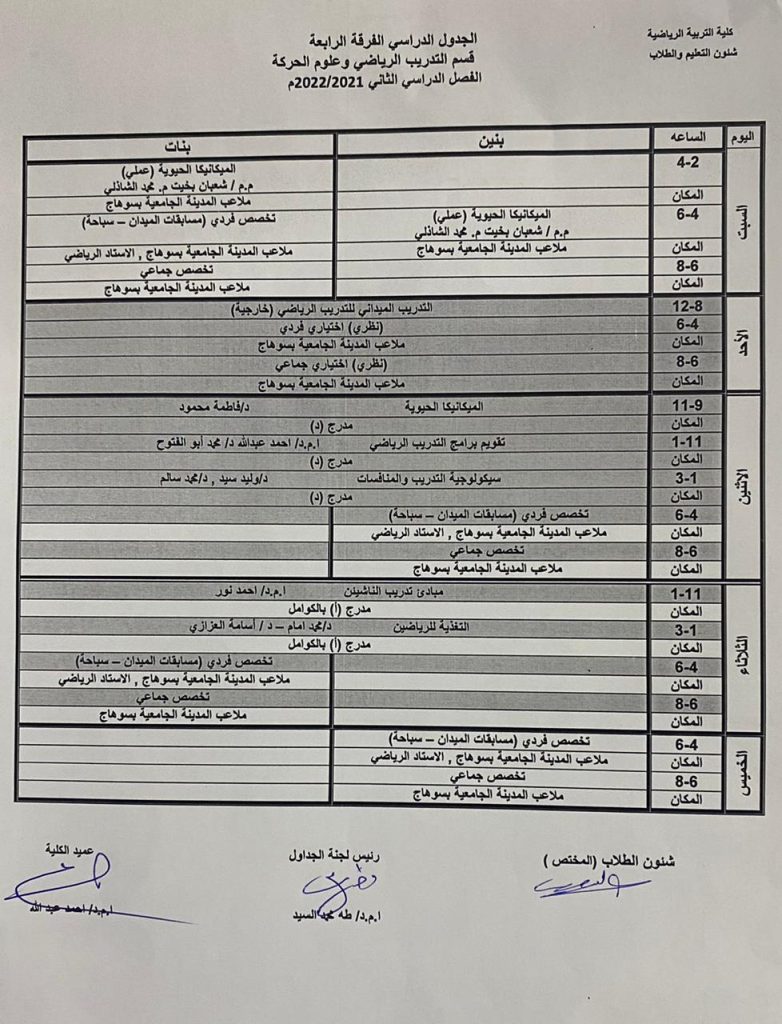 كلية التربية الرياضية
شئون التعليم والطلاب
الجدول الدراسي الفرقة الرابعة
قسم التدريب الرياضي وعلوم الحركة
الفصل الدراسي الثاني 2022/2021م
اليوم الساعه بنين بنات
السبت
4-2 الميكانيكا الحيوية (عملي)
م.م / شعبان بخيت م. محمد الشاذلي
المكان ملاعب المدينة الجامعية بسوهاج
6-4 الميكانيكا الحيوية (عملي) تخصص فردي (مسابقات الميدان – سباحة)
م.م / شعبان بخيت م. محمد الشاذلي
المكان ملاعب المدينة الجامعية بسوهاج ملاعب المدينة الجامعية بسوهاج , الاستاد الرياضي
8-6 تخصص جماعي
المكان ملاعب المدينة الجامعية بسوهاج
الأحد
12-8 التدريب الميداني للتدريب الرياضي (خارجية)
6-4 (نظري) اختياري فردي
المكان ملاعب المدينة الجامعية بسوهاج
8-6 (نظري) اختياري جماعي
المكان ملاعب المدينة الجامعية بسوهاج
الاثنين
11-9 الميكانيكا الحيوية د/فاطمة محمود
المكان مدرج (د)
1-11 تقويم برامج التدريب الرياضي ا.م.د/ احمد عبدالله د/ محمد أبو الفتوح
المكان مدرج (د)
3-1 سيكولوجية التدريب والمنافسات د/وليد سيد , د/محمد سالم
المكان مدرج (د)
6-4 تخصص فردي (مسابقات الميدان – سباحة)
المكان ملاعب المدينة الجامعية بسوهاج , الاستاد الرياضي
8-6 تخصص جماعي
المكان ملاعب المدينة الجامعية بسوهاج
الثلاثاء
1-11 مبادئ تدريب الناشيئن ا.م.د/ احمد نور
المكان مدرج (أ) بالكوامل
3-1 التغذية للرياضين د/محمد امام – د / أسامة العزازي
المكان مدرج (أ) بالكوامل
6-4 تخصص فردي (مسابقات الميدان – سباحة)
المكان ملاعب المدينة الجامعية بسوهاج , الاستاد الرياضي
8-6 تخصص جماعي
المكان ملاعب المدينة الجامعية بسوهاج
الخميس
6-4 تخصص فردي (مسابقات الميدان – سباحة)
المكان ملاعب المدينة الجامعية بسوهاج , الاستاد الرياضي
8-6 تخصص جماعي
المكان ملاعب المدينة الجامعية بسوهاج
شئون الطلاب (المختص )
رئيس لجنة الجداول
ا.م.د/ طه محمد السيد
عميد الكلية
ا.م.د/ احمد عبد الله